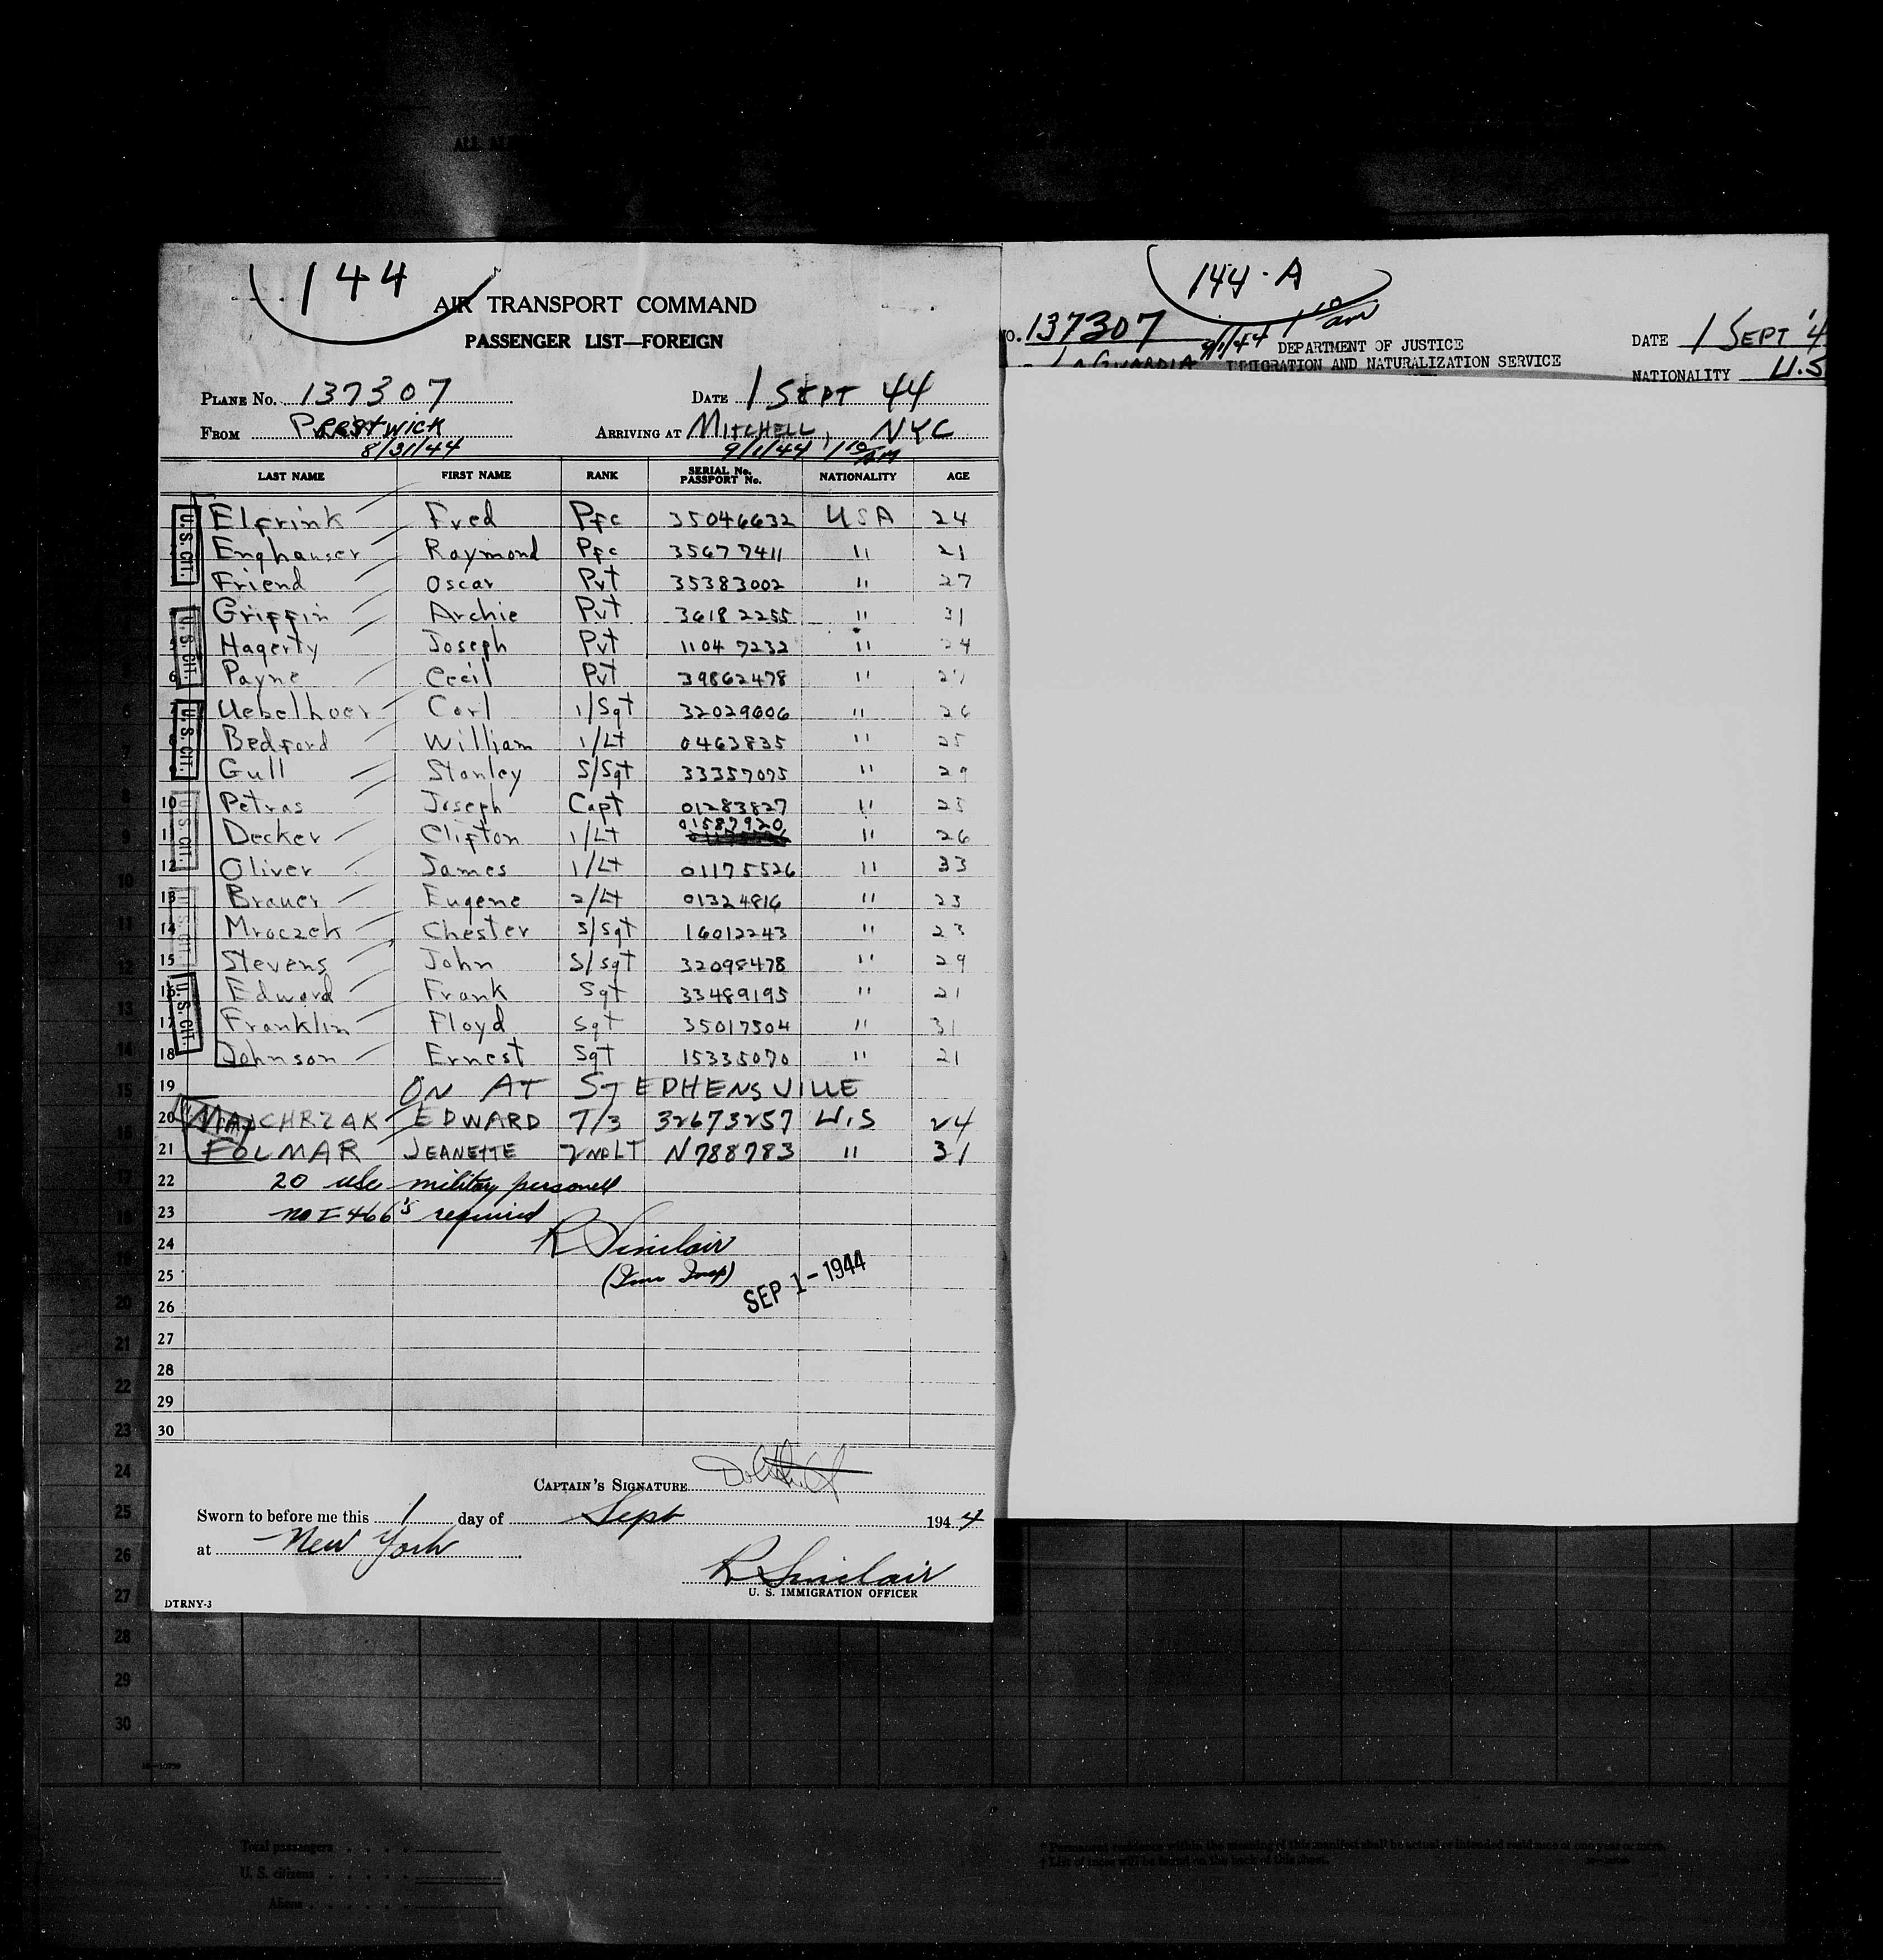 144
AIR TRANSPORT COMMAND
PASSENGER LIST—FOREIGN
PLANE No. 137307 DATE 1 SEPT 44
FROM Prestwick ARRIVING AT MITCHELL, NYC
8/31/44 9/1/44 1 10 AM
LAST NAME FIRST NAME RANK SERIAL No. PASSPORT No. NATIONALITY AGE
Elfrink Fred Pfc 35046632 USA 24
Enghauser Raymond Pfc 35677411 " 21
Friend Oscar Pvt 35383002 " 27
Griffin Archie Pvt 36182255 " 31
5 Hagerty Joseph Pvt 11047232 " 24
6 Payne Cecil Pvt 39862478 " 27
7 Uebelhoer Carl 1/Sgt 32029606 " 26
8 Bedford William 1/Lt 0463835 " 25
9 Gull Stanley S/Sgt 33357075 " 29
10 Petras Joseph Capt 01283827 " 25
11 Decker Clifton 1/Lt 01587920 " 26
12 Oliver James 1/Lt 01175526 " 33
13 Brauer Eugene 2/Lt 01324816 " 23
14 Mroczek Chester S/Sgt 16012243 " 23
15 Stevens John S/Sgt 32098478 " 29
16 Edward Frank Sgt 33489195 " 21
17 Franklin Floyd Sgt 35017504 " 31
18 Johnson Ernest Sgt 15335070 " 21
19 ON AT STEPHENSVILLE
20 MAJCHRZAK EDWARD T/3 32673257 U.S 24
21 FOLMAR JEANETTE 2ND LT N788783 " 31
22 20 USC military personell
23 no I 466's required
24 R Sinclair
25 (Imm Insp)
SEP 1 - 1944
26
27
28
29
30
U.S. CIT.
U.S. CIT.
U.S. CIT.
U.S. CIT.
U.S. CIT.
U.S. CIT.
CAPTAIN'S SIGNATURE
Sworn to before me this 1 day of Sept 1944
at New York
R Sinclair
U. S. IMMIGRATION OFFICER
DTRNY-3
144-A
O. 137307 9/1/44 1 10 am DATE 1 SEPT '4
DEPARTMENT OF JUSTICE
LAGUARDIA IMMIGRATION AND NATURALIZATION SERVICE
NATIONALITY U.S
Total passengers
U. S. citizens
Aliens
* Permanent residence within the meaning of this manifest shall be actual or intended residence of one year or more.
† List of races will be found on the back of this sheet.